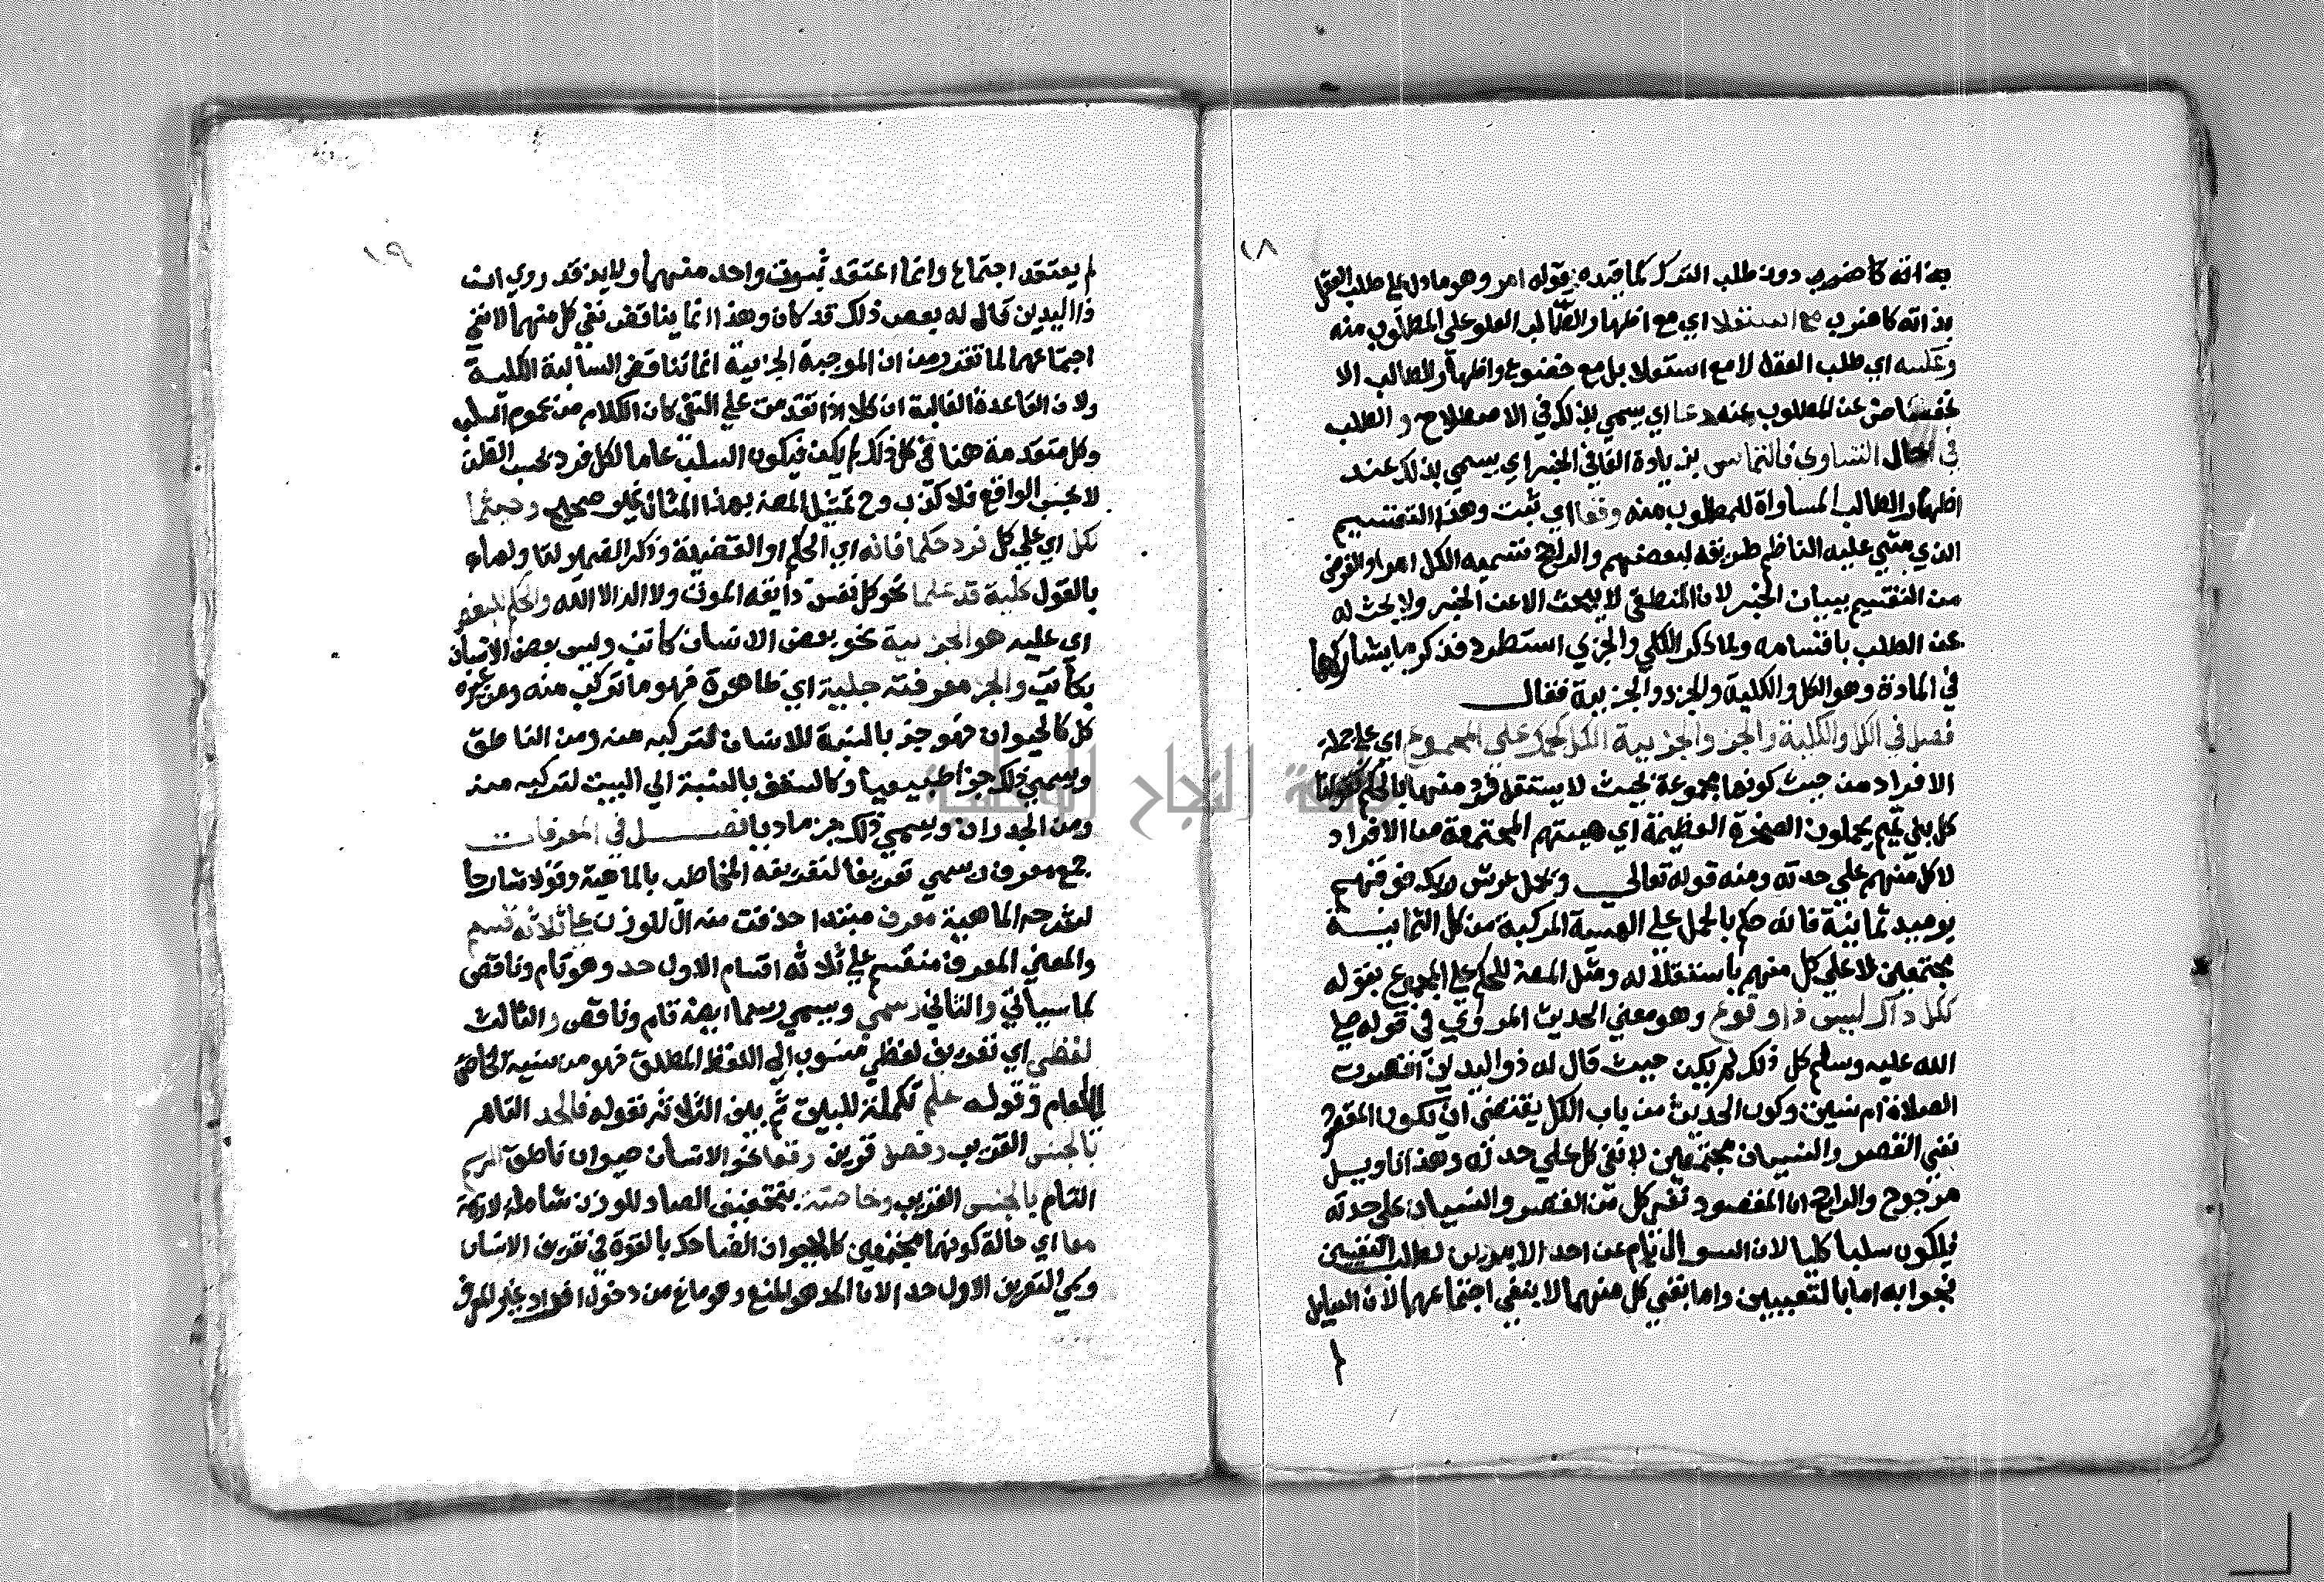 ١٨
بذاته كاضرب دون طلب الترك كما قيده بقوله امر وهو ما دل على طلب الفعل
بذاته كاضرب مع استعلا اي مع اظهار الطالب العلو على المطلوب منه
وعكسه اي طلب الفعل لا مع استعلا بل مع خضوع واظهار الطالب الا
نخفاض عن المطلوب عنه دعا اي يسمى بذلك في الاصطلاح و الطلب
في الحال التساوى فالتماس بزيادة الفا في الخبر اي يسمى بذلك عند
اظهار الطالب المساواة للمطلوب منه وقعا اي ثبت وهذا التقسيم
الذي مشي عليه الناظم طريقة لبعضهم والراجح تسمية الكل امرا والغرض
من التقسيم بيان الخبر لان المنطقي لا يبحث الا عن الخبر ولا يبحث له
عن الطلب باقسامه ولما ذكر الكلي والجزي استطرد فذكر ما يشاركها
في المادة وهو الكل والكلية والجزء والجزيية فقال
فصل في الكل والكلية والجز والجزيية الكل حكمنا على المجموع اي على جملة
الافراد من حيث كونها مجموعة بحيث لا يستقل فرد منها بالحكم كقولنا
كل بني تميم يحملون الصخرة العظيمة اي هييتهم المجتمعة من الافراد
لا كل منهم على حدته ومنه قوله تعالى ويحمل عرش ربك فوقهم
يوميد ثمانية فانه حكم بالحمل على الهيية المركبة من كل الثمانية
مجتمعين لا على كل منهم باستقلاله ومثل المصنف للحكم على المجموع بقوله
ككل ذاك ليس ذا وقوع وهو معني الحديث المروي في قوله صلى
الله عليه وسلم كل ذلك لم يكن حيث قال له ذو اليدين اقصرت
الصلاة ام نسيت وكون الحديث من باب الكل يقتضي ان يكون المقصود
نفي القصر والنسيان مجتمعين لا نفي كل على حدته وهذا تاويل
مرجوح والراجح ان المقصود نفي كل من القصر والنسيان على حدته
فيكون سلبا كليا لان السوال بام عن احد الامرين لطلب التعيين
فجوابه اما بالتعيين واما بنفي كل منهما لا بنفي اجتماعهما لان السايل
١٩
لم يعتقد اجتماع وانما اعتقد ثبوت واحد منهما ولانه قد روي ان
ذا اليدين قال له بعض ذلك قد كان وهذا انما يناقض نفي كل منهما لا نفي
اجتماعهما لما تقدم من ان الموجبة الجزيية انما تناقض السالبة الكلية
ولان القاعدة الغالبة ان كلا اذا تقدمت على النفي كان الكلام من عموم السلب
وكل متقدمة هنا في كل ذلك لم يكن فيكون السلب عاما لكل فرد بحسب الظن
لا بحسب الواقع فلا كذب وح تمثيل المصنف بهذا المثال غير صحيح وحيثما
لكل اي على كل فرد حكما فانه اي الحكم او القضية وذكر الضمير
بالقول كلية قد علما نحو كل نفس ذايقة الموت ولا اله الا الله والحكم للبعض
اي عليه هو الجزيية نحو بعض الانسان كاتب وليس بعض الانسان
بكاتب والجز معرفته جلية اي ظاهرة فهو ما تركب منه ومن غيره
كل كالحيوان فهو جز بالنسبة للانسان لتركبه منه ومن الناطق
ويسمى ذلك جزا طبيعيا وكالسقف بالنسبة الى البيت لتركبه منه
ومن الجدران ويسمى ذلك جز ماديا فصل في المعرفات
جمع معرف ويسمى تعريفا لتعريفه المخاطب بالماهية وقولا شارحا
لشرحه الماهية معرف مبتدا حذفت منه ال للوزن على ثلاثة قسم
والمعنى المعرف منقسم على ثلاثة اقسام الاول حد وهو تام وناقص
كما سياتي والثاني رسمي ويسمى رسما ايضا تام وناقص والثالث
لفظي اي تعريف لفظي منسوب الى اللفظ المطلق فهو من نسبة الخاص
الى العام وقوله علم تكملة للبيت ثم بين الثلاثة بقوله فالحد التام
بالجنس القريب وفصل قريب وقعا نحو الانسان حيوان ناطق الرسم
التام بالجنس القريب وخاصة بتخفيف الصاد للوزن شاملة لازمة
معا اي حالة كونهما مجتمعين كالحيوان الضاحك بالقوة في تعريف الانسان
وسمي التعريف الاول حدا لان الحد هو المنع وهو مانع من دخول افراد غير المعرف